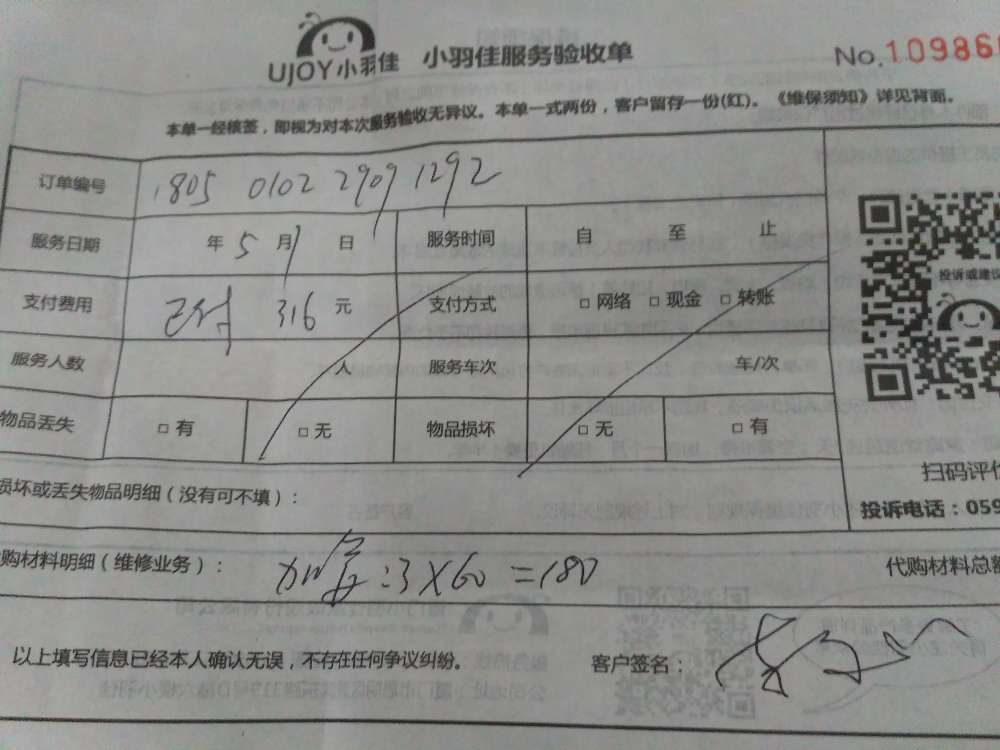 UJOY小羽佳 小羽佳服务验收单 No.10986
本单一经核签，即视为对本次服务验收无异议。本单一式两份，客户留存一份(红)。《维保须知》详见背面。
订单编号 1805 0102 2909 1292
服务日期 年 5 月 1 日 服务时间 自 至 止
支付费用 已付 316 元 支付方式 □ 网络 □ 现金 □ 转账
服务人数 人 服务车次 车/次
物品丢失 □ 有 □ 无 物品损坏 □ 无 □ 有
投诉或建议
扫码评价
投诉电话：059
损坏或丢失物品明细（没有可不填）：
购材料明细（维修业务）： 加氟:3×60=180 代购材料总额
以上填写信息已经本人确认无误，不存在任何争议纠纷。 客户签名：